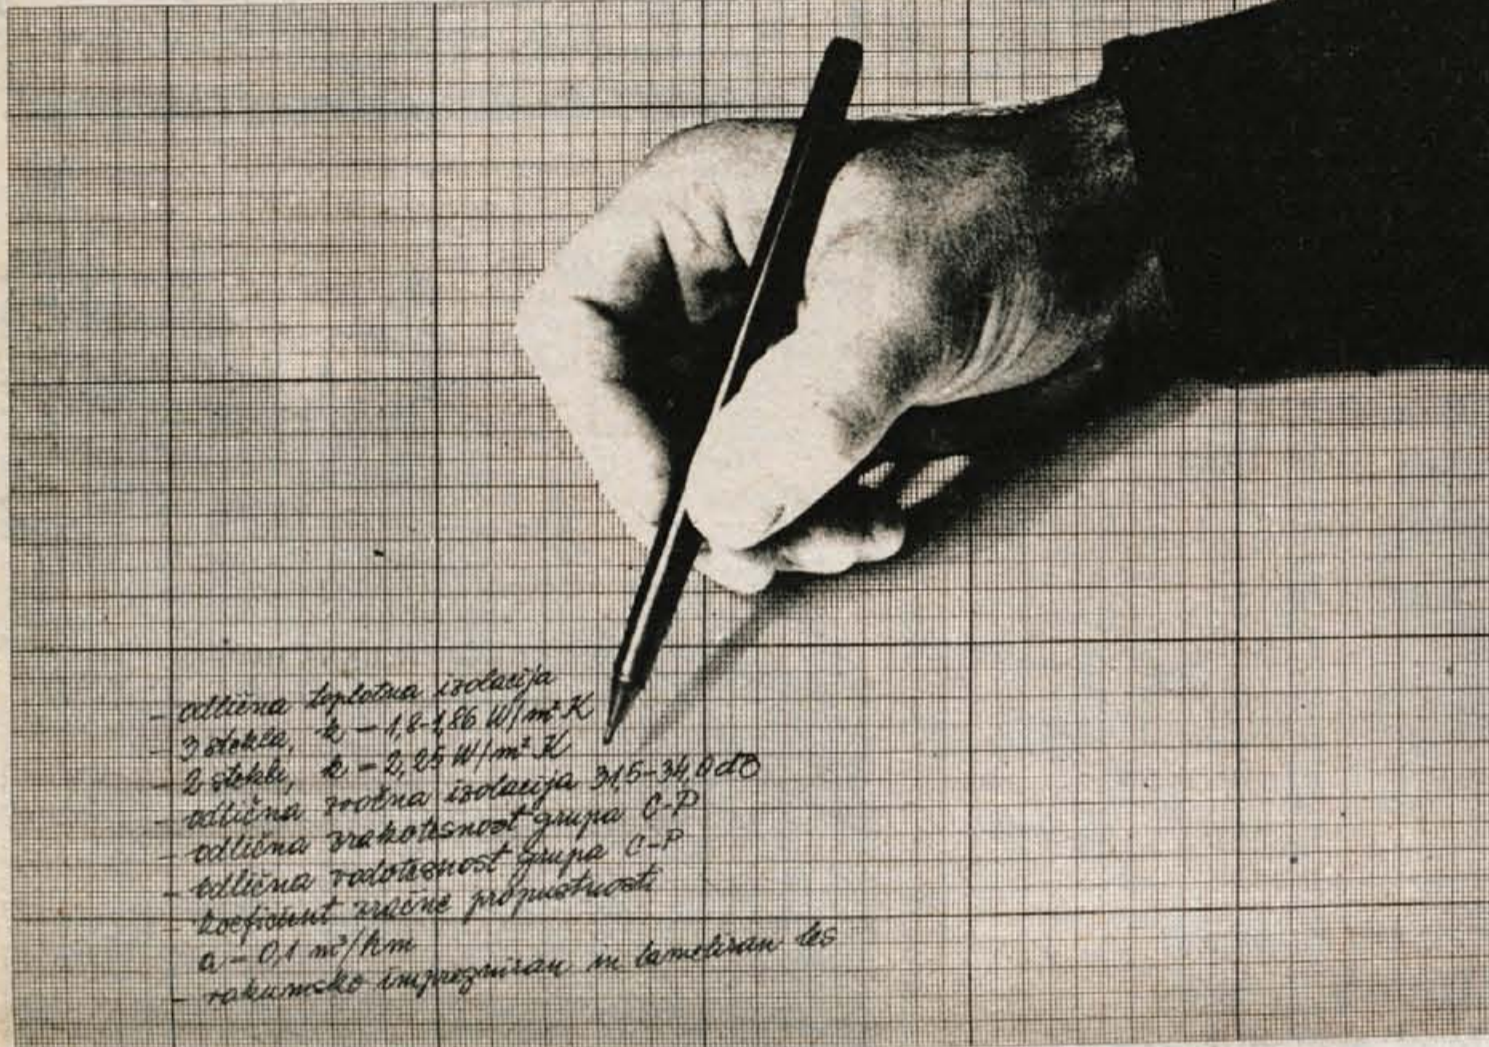 - odlična toplotna izolacija
- 3 stekla, k - 1,8-1,86 W/m² K
2 stekli, k - 2,25 W/m² K
- odlična zvočna izolacija 31,5-34,0 dB
- odlična zrakotesnost grupa C-P
- odlična vodotesnost grupa C-P
- koeficient zračne propustnosti
a - 0,1 m³/hm
- vakumsko impregniran in lameliran les